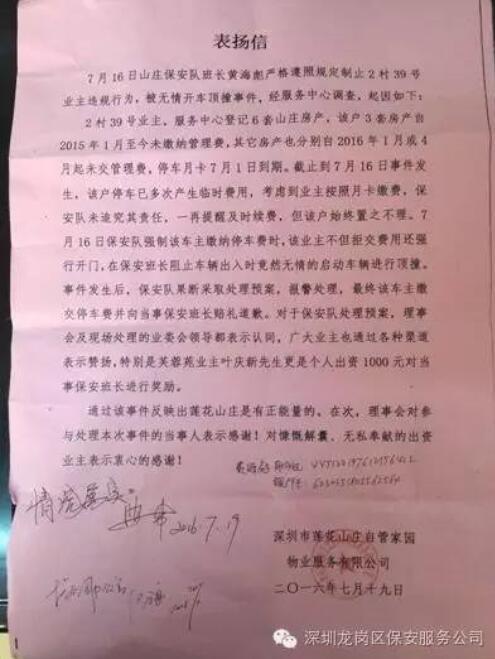 表扬信
7月16日山庄保安队班长黄海彪严格遵照规定制止2村39号
业主违规行为，被无情开车顶撞事件，经服务中心调查，起因如下：
2村39号业主，服务中心登记6套山庄房产，该户3套房产自
2015年1月至今未缴纳管理费，其它房产也分别自2016年1月或4
月起未交管理费，停车月卡7月1日到期。截止到7月16日事件发
生，该户停车已多次产生临时费用，考虑到业主按照月卡缴费，保
安队未追究其责任，一再提醒及时续费，但该户始终置之不理。7
月16日保安队强制该车主缴纳停车费时，该业主不但拒交费用还强
行开门，在保安班长阻止车辆出入时竟然无情的启动车辆进行顶撞。
事件发生后，保安队果断采取处理预案，报警处理，最终该车主缴
交停车费并向当事保安班长赔礼道歉。对于保安队处理预案，理事
会及现场处理的业委会领导都表示认同，广大业主也通过各种渠道
表示赞扬，特别是芙蓉苑业主叶庆新先生更是个人出资1000元对当
事保安班长进行奖励。
通过该事件反映出莲花山庄是有正能量的。在次，理事会对参
与处理本次事件的当事人表示感谢！对慷慨解囊、无私奉献的出资
业主表示衷心的感谢！
情况属实
2016.7.19
深圳市莲花山庄自管家园
物业服务有限公司
二〇一六年七月十九日
深圳龙岗区保安服务公司